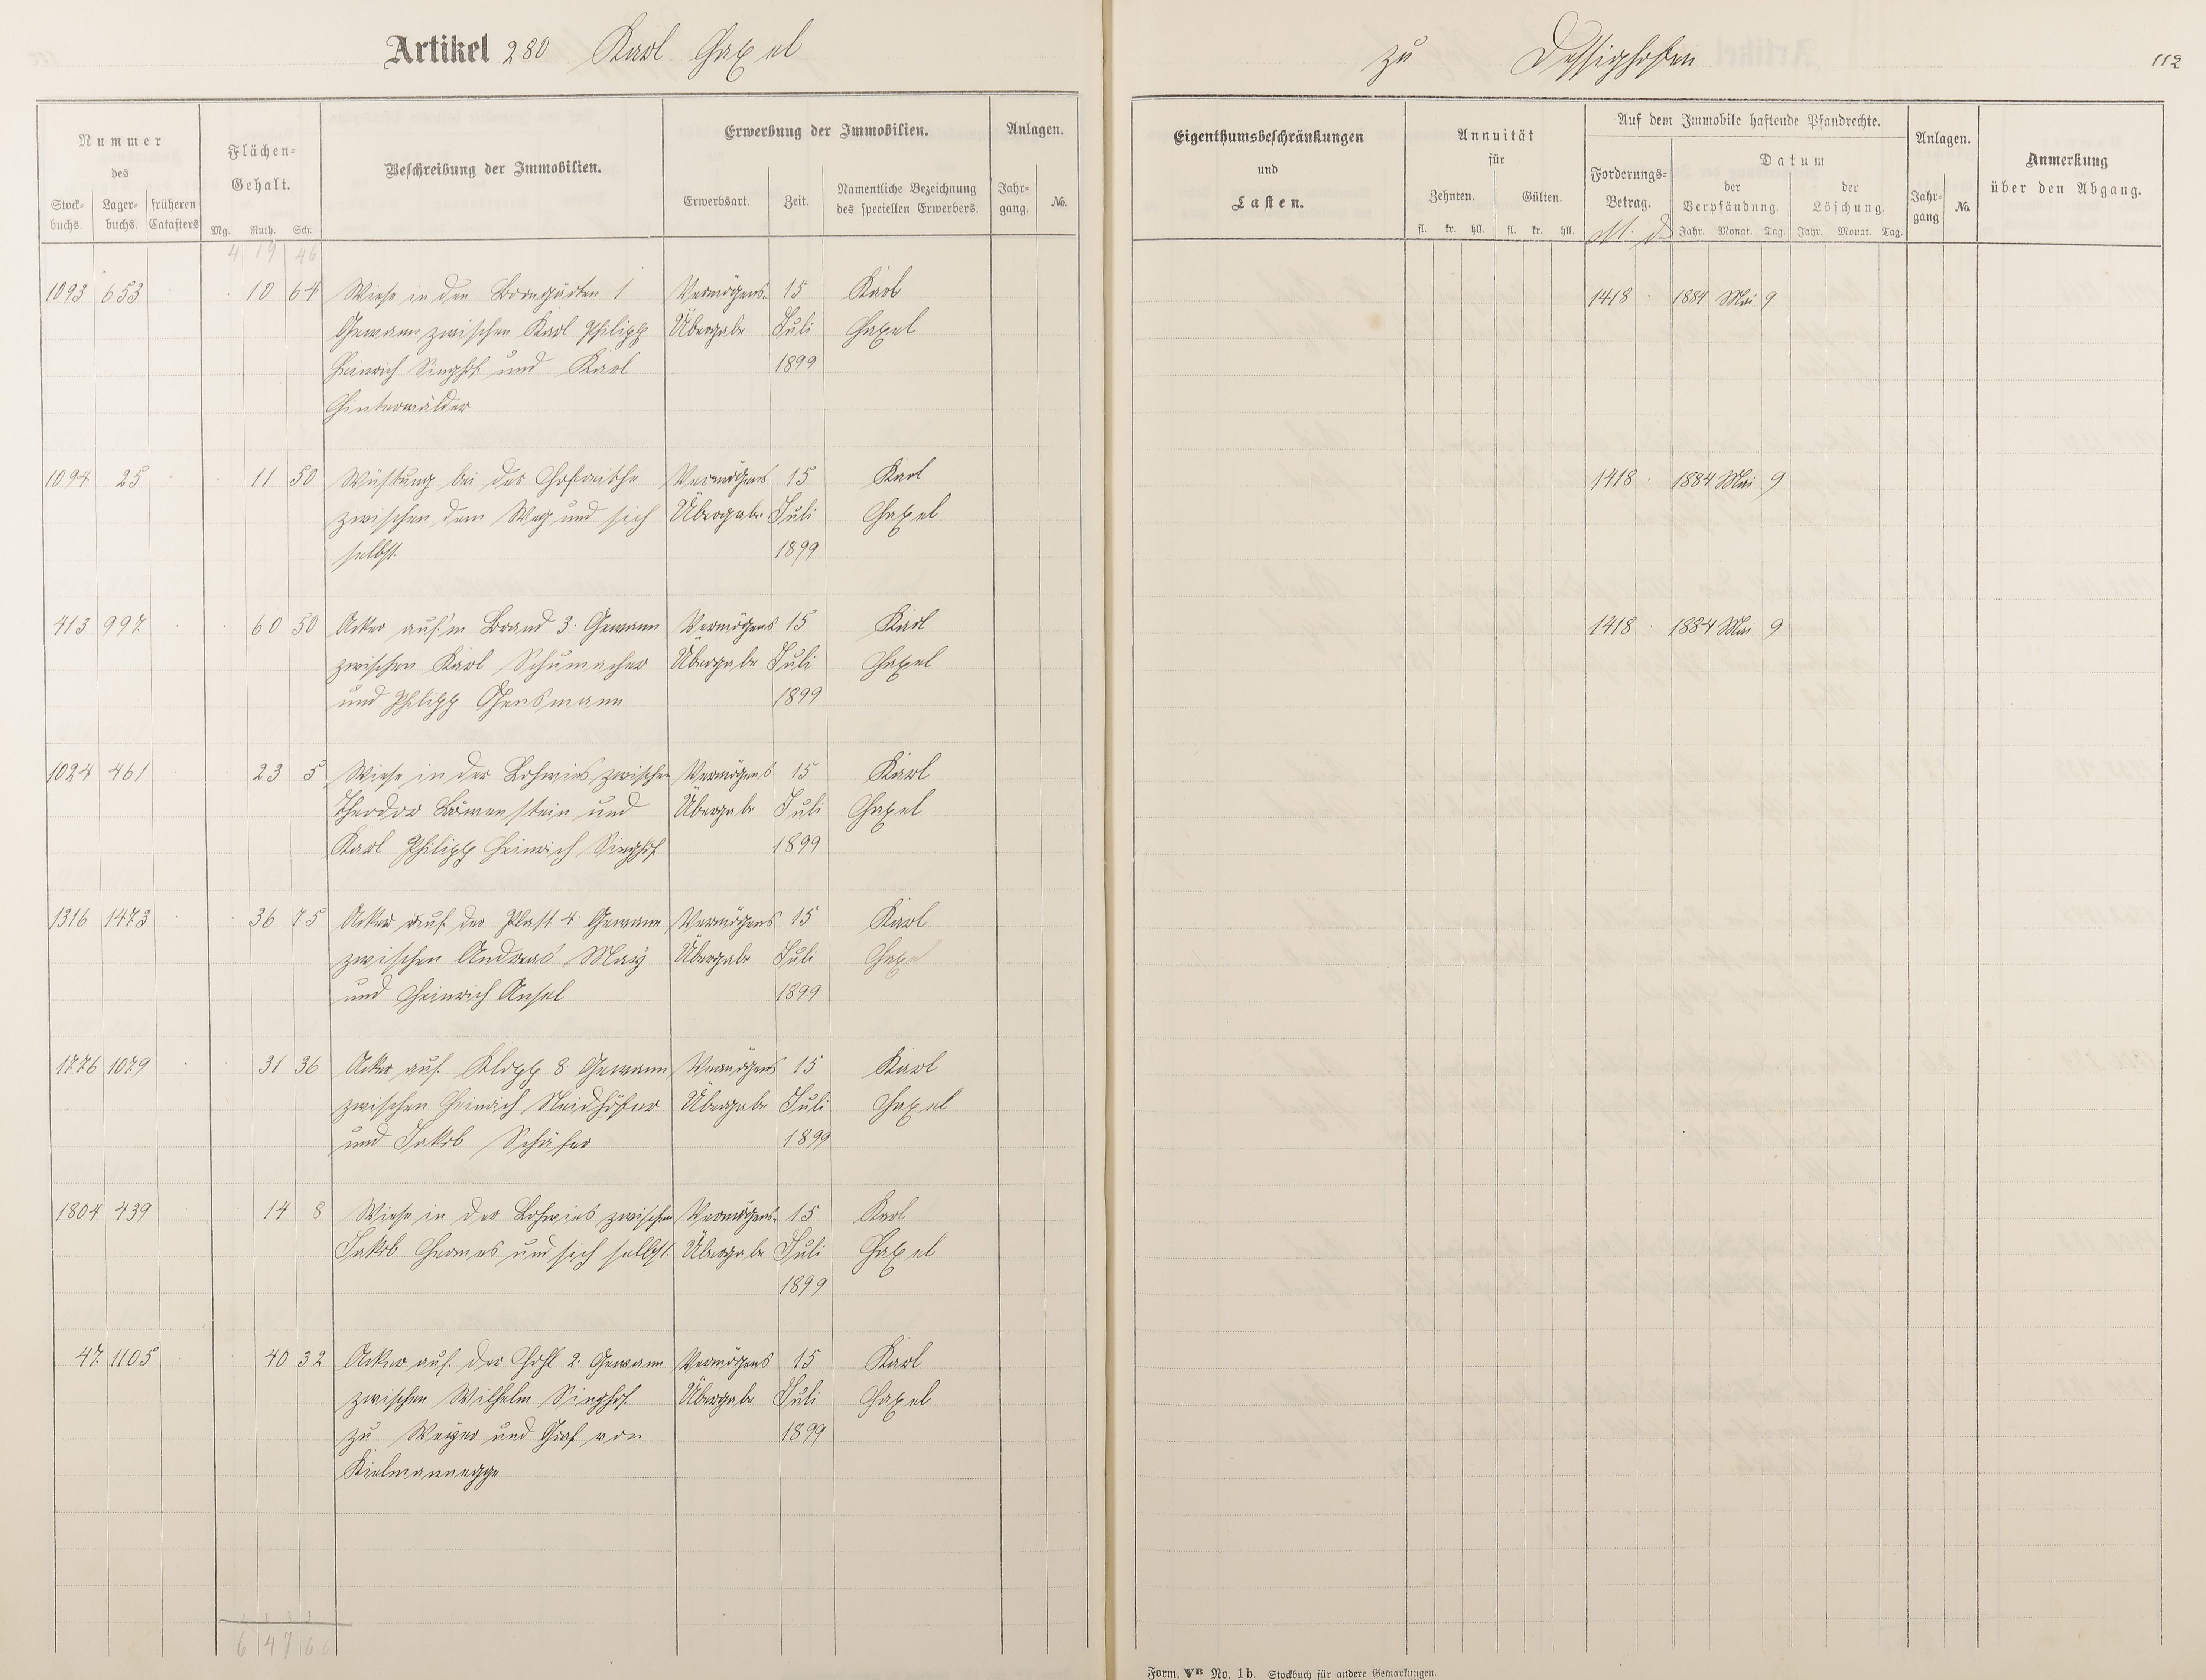 Artikel 280 Karl Haxel
zu Dessighofen
112
Nummer
des
Stock-
buchs.
Lager-
buchs.
früheren
Catasters
Flächen-
Gehalt.
Mg. Ruth. Sch.
Beschreibung der Immobilien.
Erwerbung der Immobilien.
Erwerbsart.
Zeit.
Namentliche Bezeichnung
des speciellen Erwerbers.
Anlagen.
Jahr-
gang.
No.
Eigenthumsbeschränkungen
und
Lasten.
Annuität
für
Zehnten.
Gülten.
fl. kr. hll. fl. kr. hll.
Auf dem Immobile haftende Pfandrechte.
Forderungs-
Betrag.
M. d
Datum
der
Verpfändung.
der
Löschung.
Jahr. Monat. Tag. Jahr. Monat. Tag.
Anlagen.
Jahr-
gang
No.
Anmerkung
über den Abgang.
4 19 46
1093 653 10 64 Wiese in den Borngärten 1 Vermögens- 15 Karl 1418 1884 Mai 9
Gewann zwischen Karl Philipp Übergabe Juli Haxel
Heinrich Singhof und Karl 1899
Hinterwälder
1094 25 11 50 Wüstung bei der zwischen Vermögens 15 Karl 1418 1884 Mai 9
zwischen dem Weg und sich Übergabe Juli Haxel
selbst. 1899
413 997 60 50 Acker auf'm Brand 3. Gewann Vermögens 15 Karl 1418 1884 Mai 9
zwischen Karl Schumacher Übergabe Juli Haxel
und Philipp 1899
1024 461 23 5 Wiese in der Lohwies zwischen Vermögens 15 Karl
Theodor Löwenstein und Übergabe Juli Haxel
Karl Philipp Heinrich Singhof 1899
1316 1473 36 75 Acker auf der Plast 4. Gewann Vermögens 15 Karl
zwischen Andreas May Übergabe Juli Haxel
und Heinrich Ansel 1899
1776 1079 31 36 Acker auf Klopp 8 Gewann Vermögens 15 Karl
zwischen Heinrich Neidhöfer Übergabe Juli Haxel
und Jakob Schäfer 1899
1804 439 14 8 Wiese in der Lohwies zwischen Vermögens- 15 Karl
Jakob Hermes und sich selbst. Übergabe Juli Haxel
1899
47 1105 40 32 Acker auf der Hohl 2. Gewann Vermögens 15 Karl
zwischen Wilhelm Singhof Übergabe Juli Haxel
zu Weyer und Graf von 1899
Kielmannsegge
6 47 66
Form. VB No. 1b. Stockbuch für andere Gemarkungen.